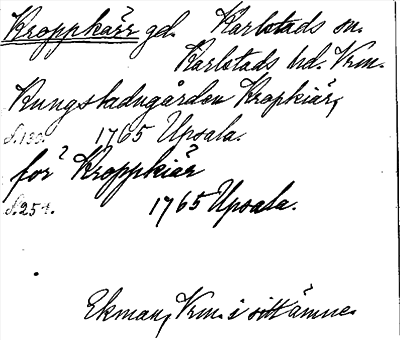 Kroppkärr gd. Karlstads sn.
Karlstads hd. Vrm.
Kungsladugården Kropkiär,
s.130. 1765 Upsala.
for? Kroppkiär
s.251. 1765 Upsala.
Ekman, Vrm. i sitt ämne.